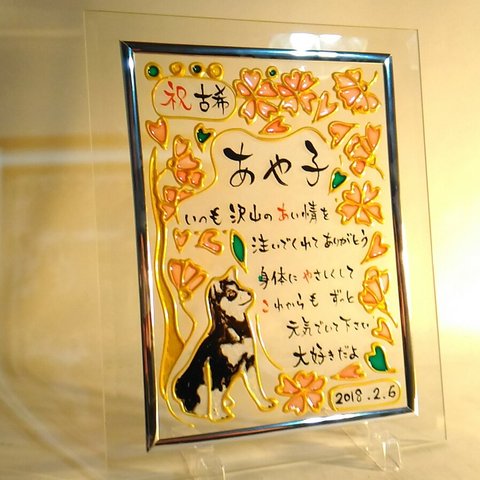 祝 古希
あや子
いつも 沢山の あい情を
注いでくれて ありがとう
身体に やさしくして
これからも ずっと
元気でいて下さい
大好きだよ
2018.2.6